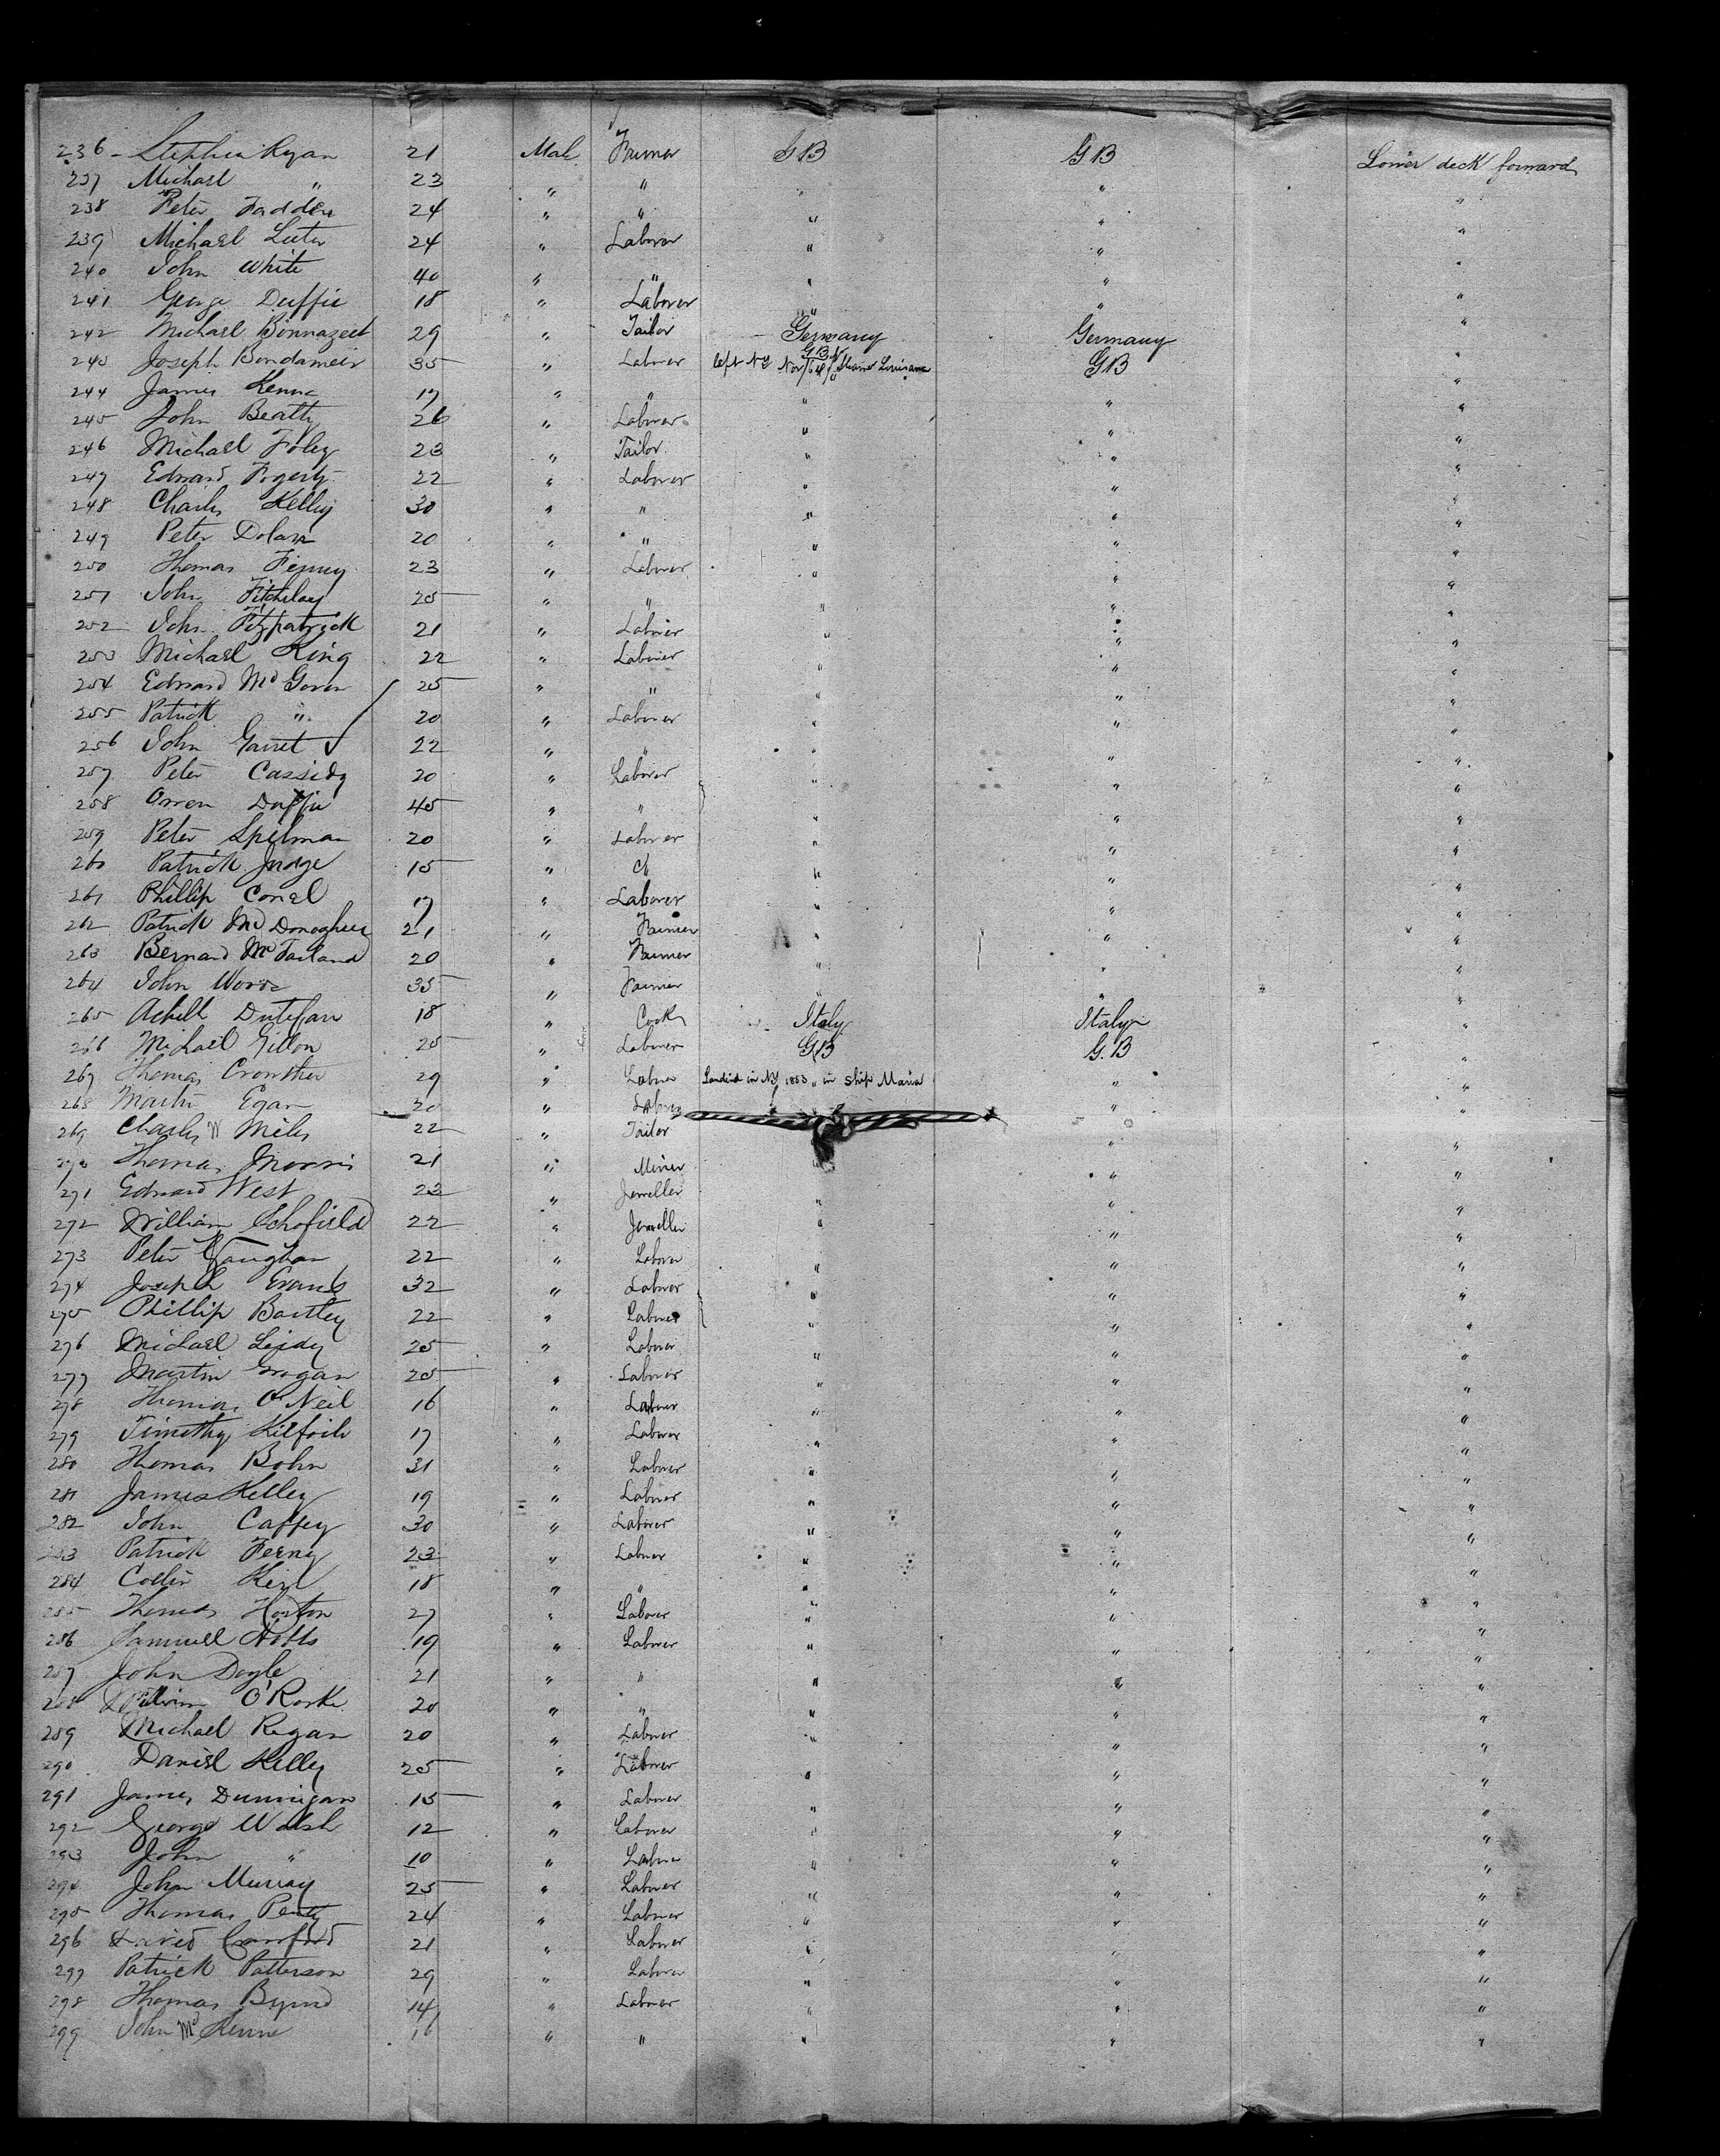 236 - Stephen Ryan 21 Male Farmer GB GB Lower deck forward
237 Michael " 23 " " " " "
238 Peter Fadden 24 " " " " "
239 Michael 24 " Laborer " " "
240 John White 40 " " " " "
241 George Duffie 18 " Laborer " " "
242 Michael 29 " Tailor Germany Germany "
243 Joseph 35 " Laborer GB left NY Nov Steamer Louisiana GB "
244 James Kenna 17 " " " " "
245 John Beatty 26 " Laborer " " "
246 Michael Foley 23 " Tailor " " "
247 Edward Fogerty 22 " Laborer " " "
248 Charles Kelley 30 " " " " "
249 Peter Dolan 20 " " " " "
250 Thomas 23 " Laborer " " "
251 John 25 " " " " "
252 John Fitzpatrick 21 " Laborer " " "
253 Michael King 22 " Laborer " " "
254 Edward McGovern 25 " " " " "
255 Patrick " 20 " Laborer " " "
256 John Garret 22 " " " " "
257 Peter Cassidy 20 " Laborer " " "
258 Owen Duffie 45 " " " " "
259 Peter Spelman 20 " Laborer " " "
260 Patrick Judge 15 " " " "
261 Phillip Conel 17 " Laborer " " "
262 Patrick McDonaghue 21 " Farmer " " "
263 Bernard McFarland 20 " Farmer " " "
264 John Woods 35 " Farmer " " "
265 Achill 18 " Cook Italy Italy "
266 Michael Gillon 25 " Laborer GB G.B "
267 Thomas Crowther 29 " Laborer Landed in NY 1853 in ship Maria " "
268 Martin Egan 20 " Laborer " "
269 Charles W Miles 22 " Tailor " "
270 Thomas Morris 21 " Miner " "
271 Edward West 23 " Jeweller " " "
272 William Schofield 22 " Jeweller " " "
273 Peter Vaughan 22 " Laborer " " "
274 Joseph Evans 32 " Laborer " " "
275 Phillip Bartley 22 " Laborer " " "
276 Michael 25 " Laborer " " "
277 Martin Grogan 25 " Laborer " " "
278 Thomas O'Neil 16 " Laborer " " "
279 Timothy Kilfoile 17 " Laborer " " "
280 Thomas Bohn 31 " Laborer " " "
281 James Kelley 19 " Laborer " " "
282 John Caffey 30 " Laborer " " "
283 Patrick Ferney 23 " Laborer " " "
284 18 " " " " "
285 Thomas Horton 27 " Laborer " " "
286 Samuell 19 " Laborer " " "
287 John Doyle 21 " " " " "
288 William O'Rorke 20 " " " " "
289 Michael Regan 20 " Laborer " " "
290 Daniel Kelley 25 " Laborer " " "
291 James Dunnigan 15 " Laborer " " "
292 George Walsh 12 " Laborer " " "
293 John " 10 " Laborer " " "
294 John Murray 25 " Laborer " " "
295 Thomas 24 " Laborer " " "
296 David Crawford 21 " Laborer " " "
297 Patrick Patterson 29 " Laborer " " "
298 Thomas 14 " Laborer " " "
299 John McKenne 16 " " " " "